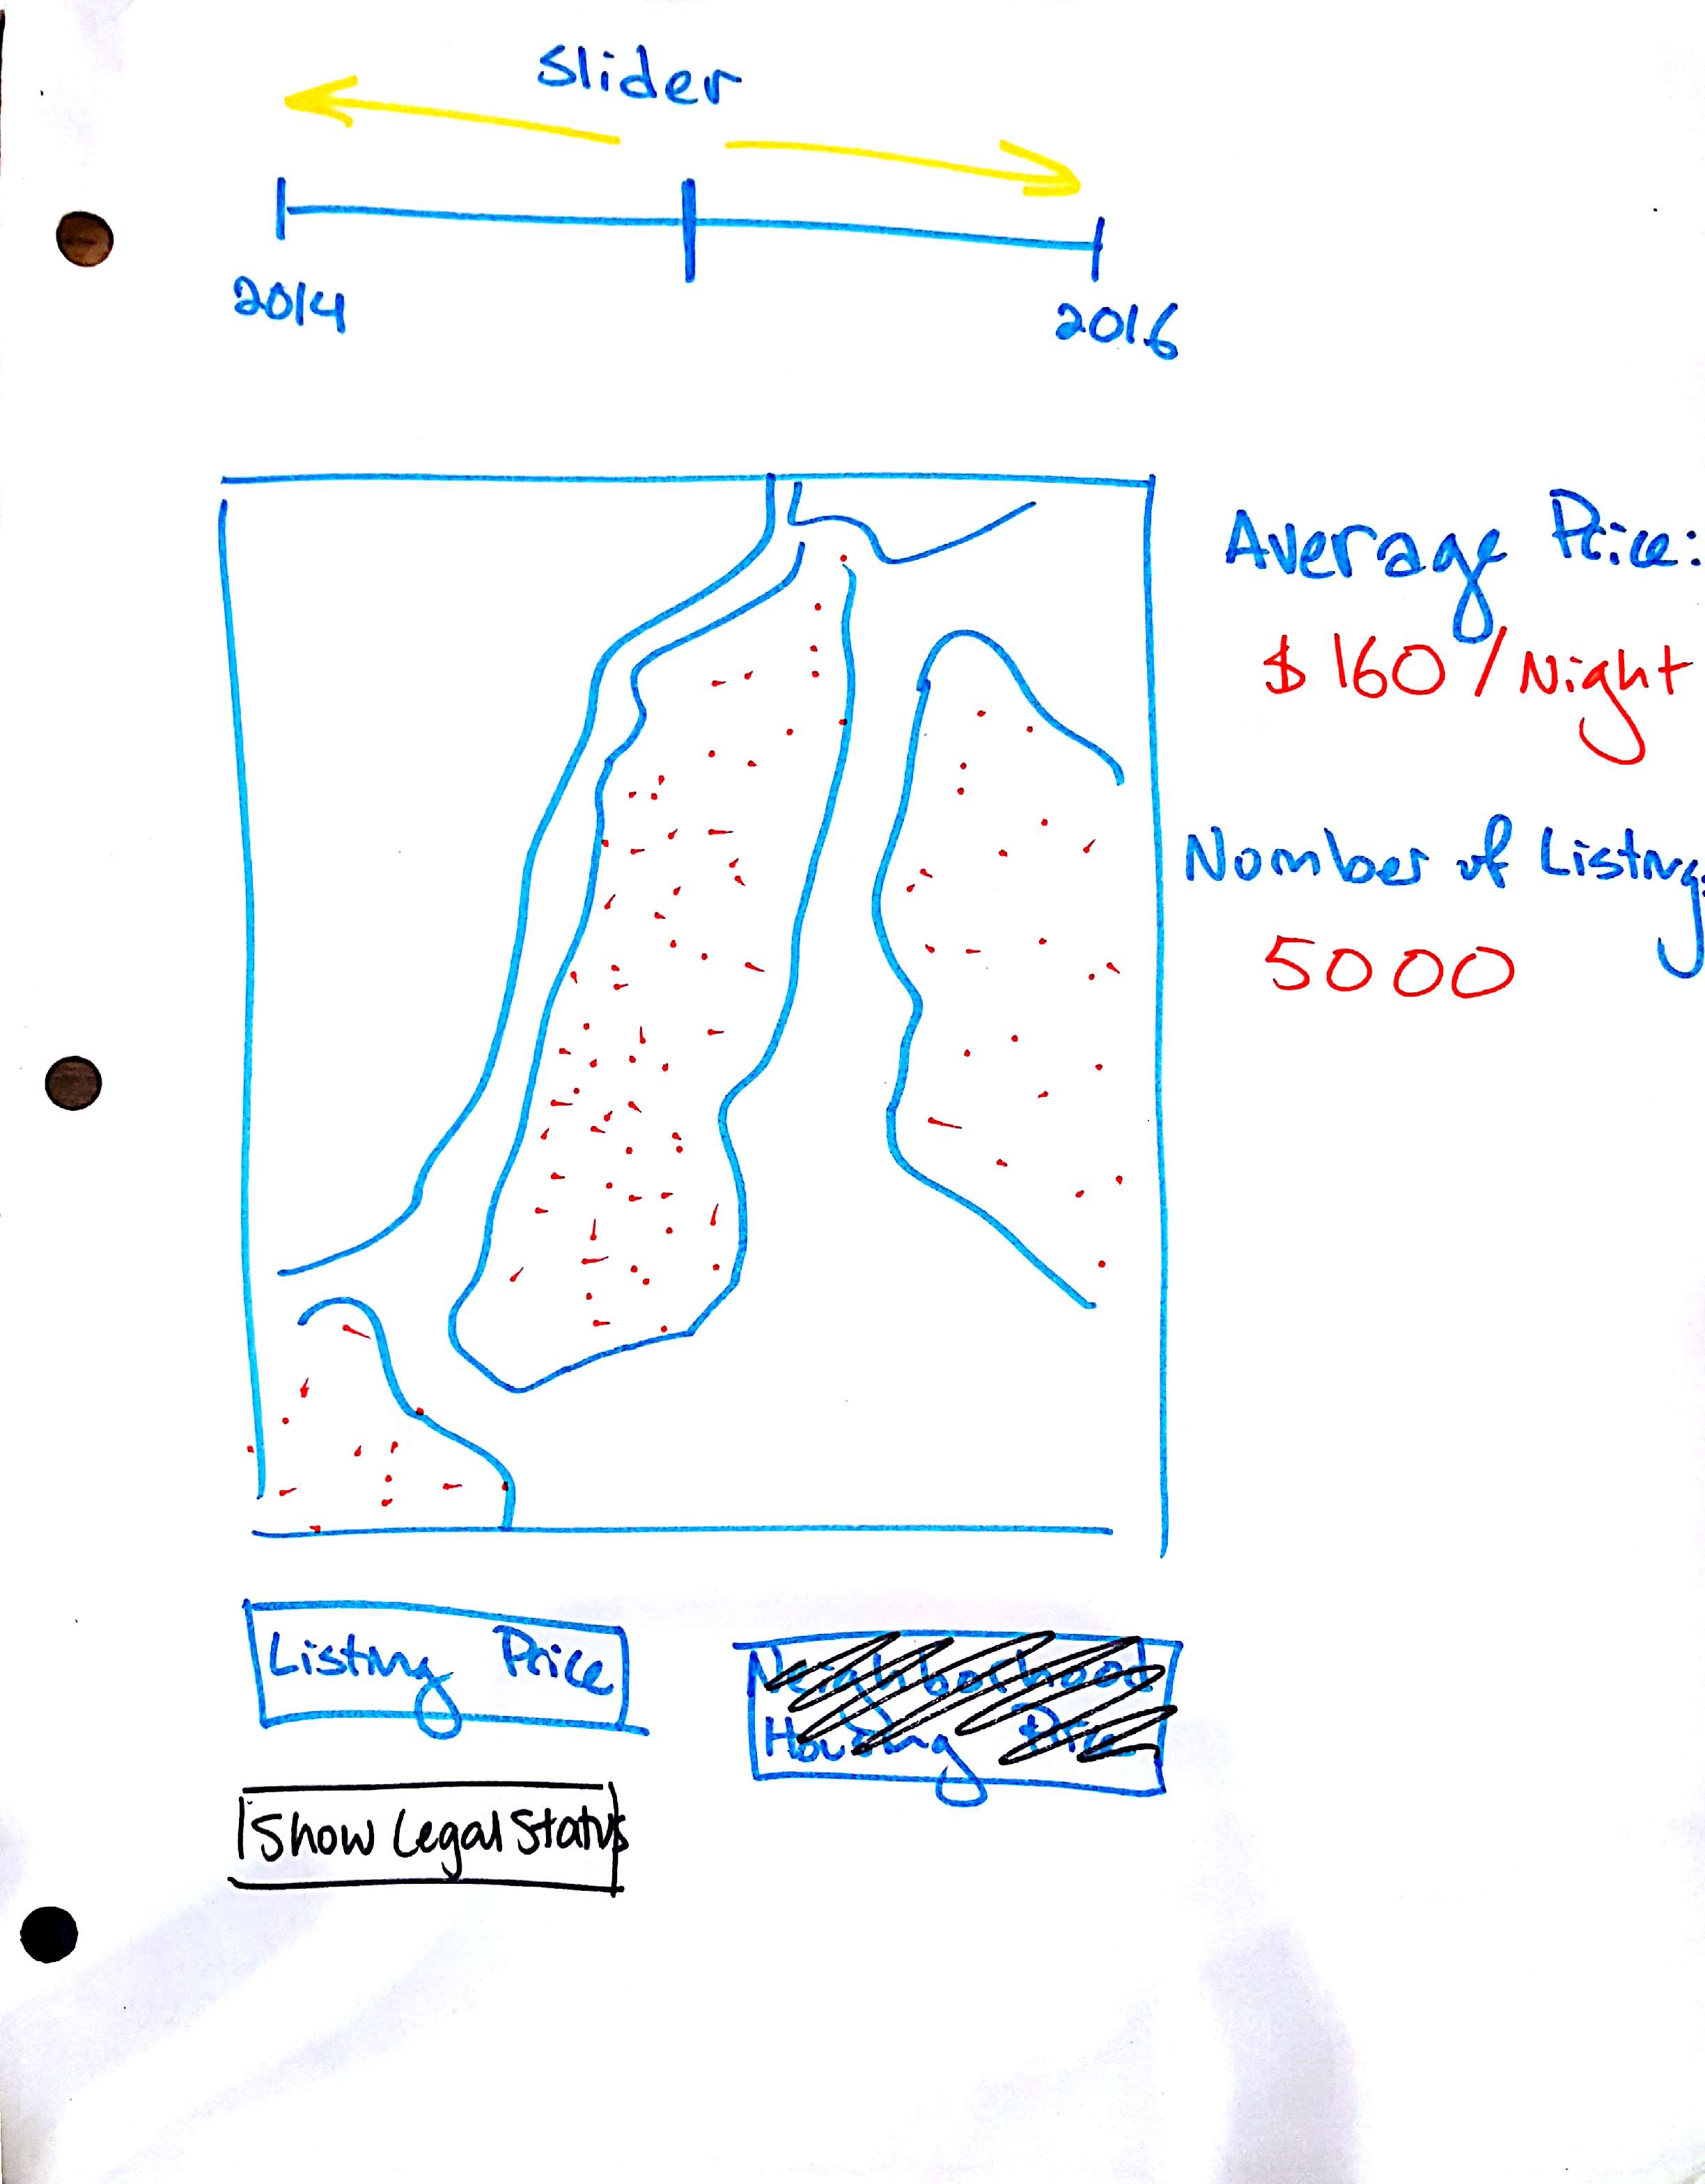 Slider
2014
2016
Average Price:
$160/Night
Nomber of Listings
5000
Listing Price
Neighborhood
Housing Price
Show Legal Status